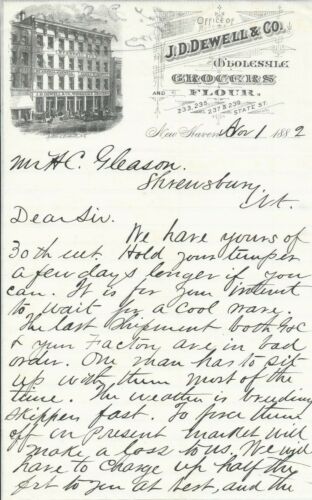 OFFICE OF
J. D. DEWELL & CO.
WHOLESALE
GROCERS
AND FLOUR.
233, 235, 237 & 239 STATE ST.
New Haven, Nov 1 1882
Mr H C. Gleason.
Shrewsbury.
Vt.
Dear Sir.
We have yours of
30th ult. Hold your temper
a few days longer if you
can. It is for your interest
to wait for a cool wave.
The last shipment both
& your Factory are in bad
order. One man has to sit
up with them most of the
time. The weather is breeding
skippers fast. To force them
off in present market will
make a loss to us. We will
have to charge up half the
frt to you at best, and the